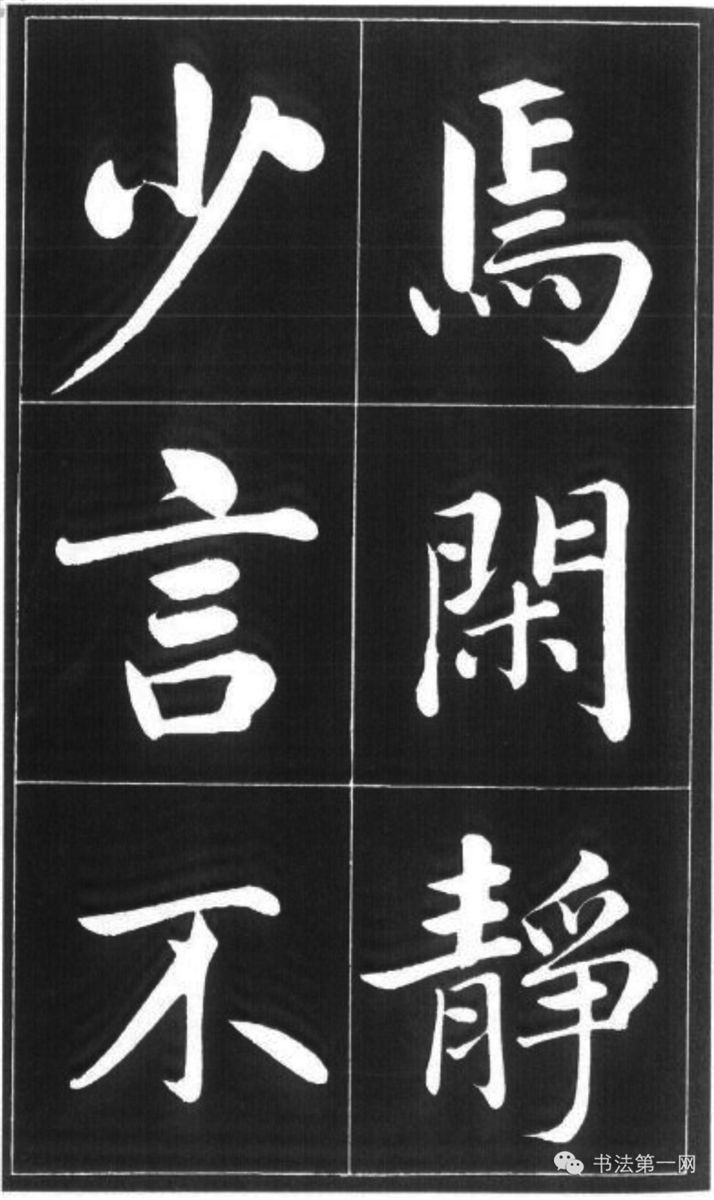 焉閑靜
少言不
书法第一网